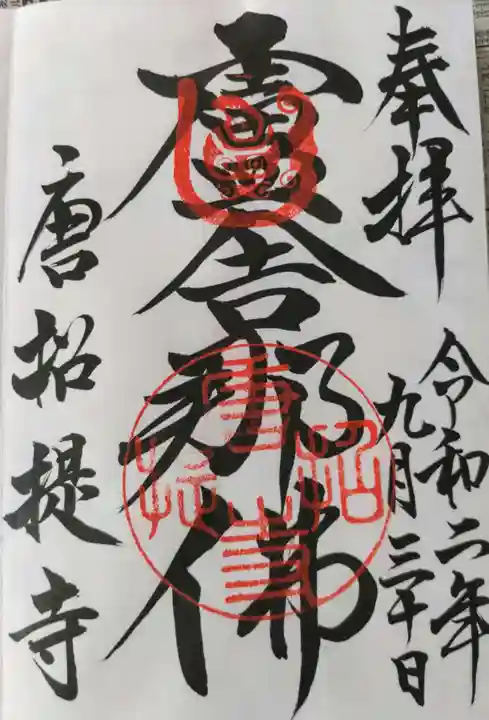 奉拝
令和二年
九月三十日
盧舎那佛
唐招提寺
唐招提寺